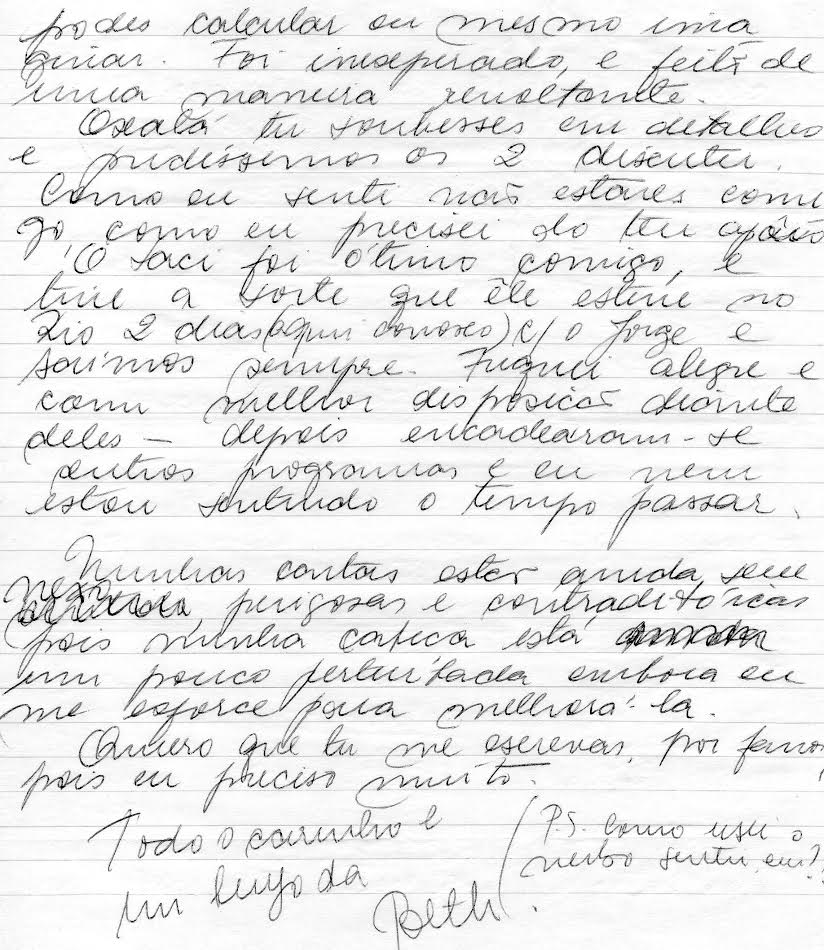 podes calcular ou mesmo ima
ginar. Foi inesperado, e feita de
uma maneira revoltante.
Oxalá tu soubesses em detalhes
e pudéssemos os 2 discutir.
Como eu senti não estares comi
go como eu precisei do teu apoio
O Saci foi ótimo comigo, e
tive a sorte que êle esteve no
Rio 2 dias (aqui conosco) c/ o Jorge e
saímos sempre. Fiquei alegre e
com melhor disposição diante
deles — depois encadearam-se
outros programas e eu nem
estou sentindo o tempo passar.
Minhas cartas estão ainda, sem
nexo, perigosas e contraditórias
pois minha cabeça está
um pouco perturbada embora eu
me esforce para melhorá-la.
Quero que tu me escrevas, por favor,
pois eu preciso muito.
Todo o carinho e
um beijo da
Beth.
(P.S. Como usei o
verbo sentir, em?!